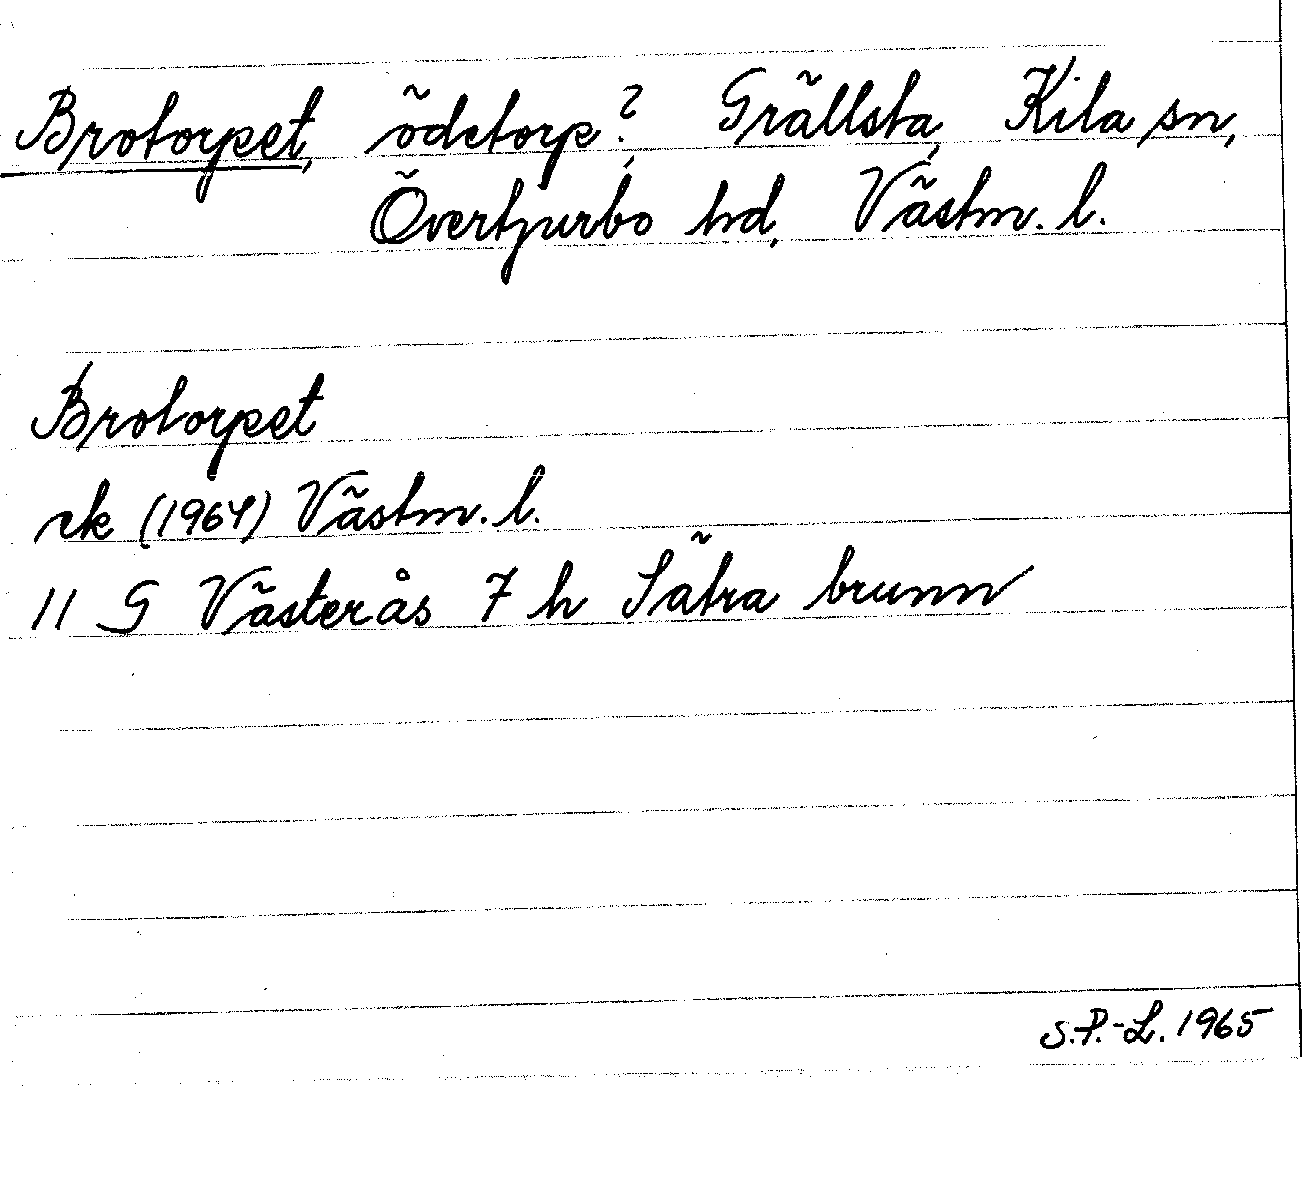 Brotorpet, ödetorp?, Grällsta, Kila sn,
Övertjurbo hd, Västm. l.
Brotorpet
rk (1964) Västm. l.
11 G Västerås 7 h Sätra brunn
S.P.-L. 1965